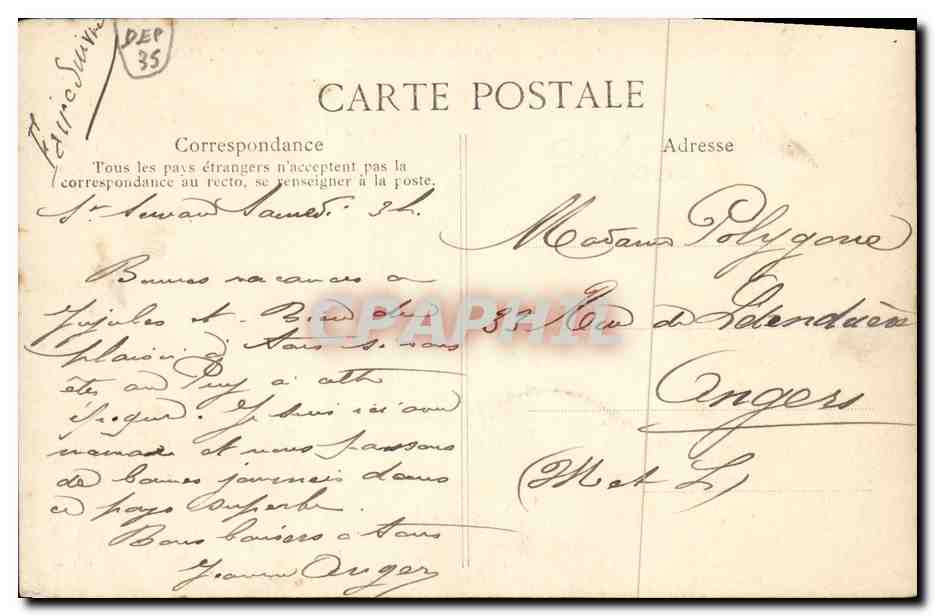 Faire Suivre
DEP
35
CARTE POSTALE
Correspondance
Tous les pays étrangers n'acceptent pas la
correspondance au recto, se renseigner à la poste.
Adresse
St Servan Samedi 3h.
Bonnes vacances a
et Bien du
plaisir à tous si vous
êtes au Puy à cette
époque. Je suis ici avec
et nous passons
de bonnes journées dans
ce pays superbe.
Bons baisers a tous
Jeanne Anger
Madame Polygone
33 Rue de
Angers
(M et L)
CPAPHIL